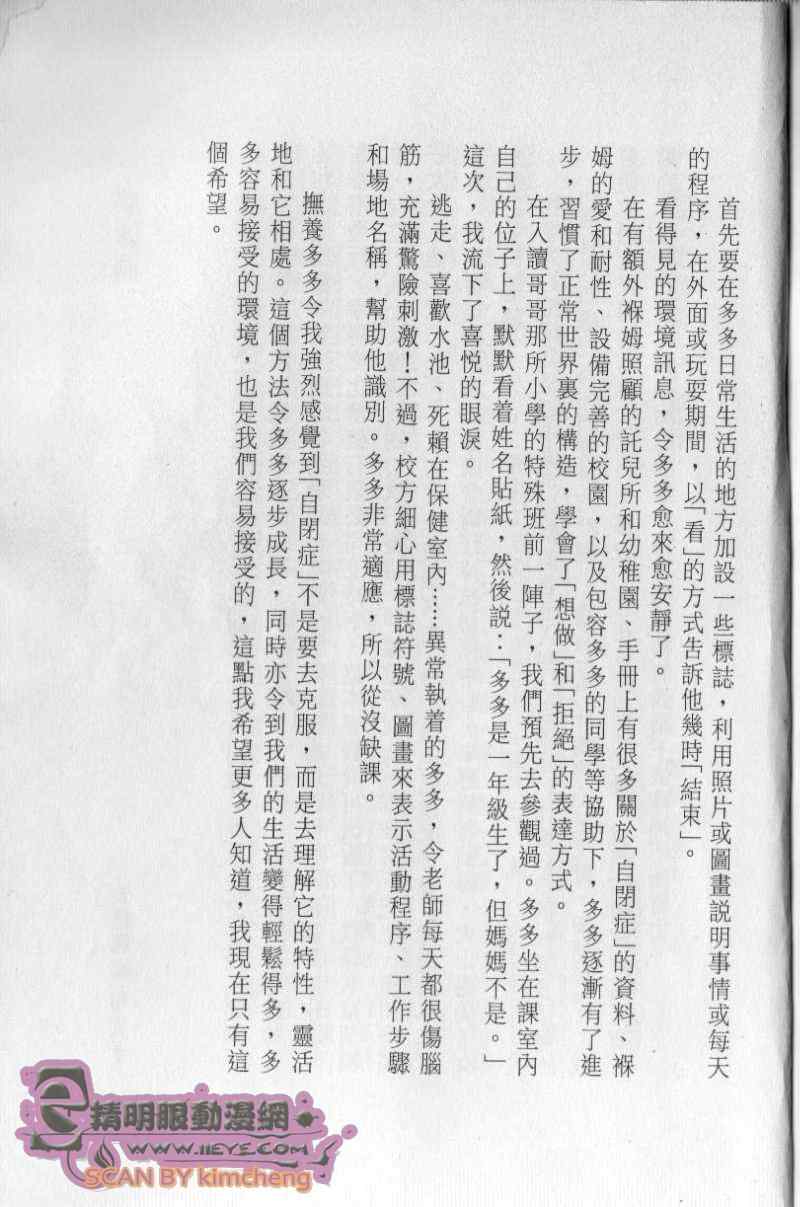 首先要在多多日常生活的地方加設一些標誌，利用照片或圖畫説明事情或每天
的程序，在外面或玩耍期間，以「看」的方式告訴他幾時「結束」。
看得見的環境訊息，令多多愈來愈安靜了。
在有額外褓姆照顧的託兒所和幼稚園、手冊上有很多關於「自閉症」的資料、褓
姆的愛和耐性、設備完善的校園，以及包容多多的同學等協助下，多多逐漸有了進
步，習慣了正常世界裏的構造，學會了「想做」和「拒絕」的表達方式。
在入讀哥哥那所小學的特殊班前一陣子，我們預先去參觀過。多多坐在課室內
自己的位子上，默默看着姓名貼紙，然後説：「多多是一年級生了，但媽媽不是。」
這次，我流下了喜悦的眼淚。
逃走、喜歡水池、死賴在保健室內……異常執着的多多，令老師每天都很傷腦
筋，充滿驚險刺激！不過，校方細心用標誌符號、圖畫來表示活動程序、工作步驟
和場地名稱，幫助他識別。多多非常適應，所以從沒缺課。
撫養多多令我強烈感覺到「自閉症」不是要去克服，而是去理解它的特性，靈活
地和它相處。這個方法令多多逐步成長，同時亦令到我們的生活變得輕鬆得多，多
多容易接受的環境，也是我們容易接受的，這點我希望更多人知道，我現在只有這
個希望。
e精明眼動漫網
WWW.IIEYE.COM
SCAN BY kimcheng